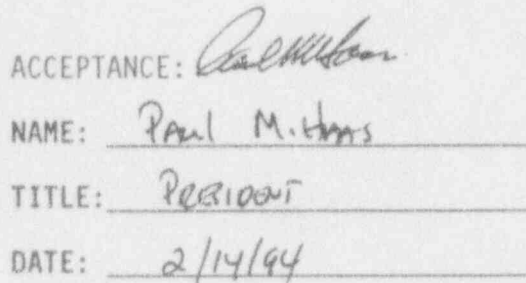 ACCEPTANCE:
NAME: Paul M. Haas
TITLE: PRESIDENT
DATE: 2/14/94